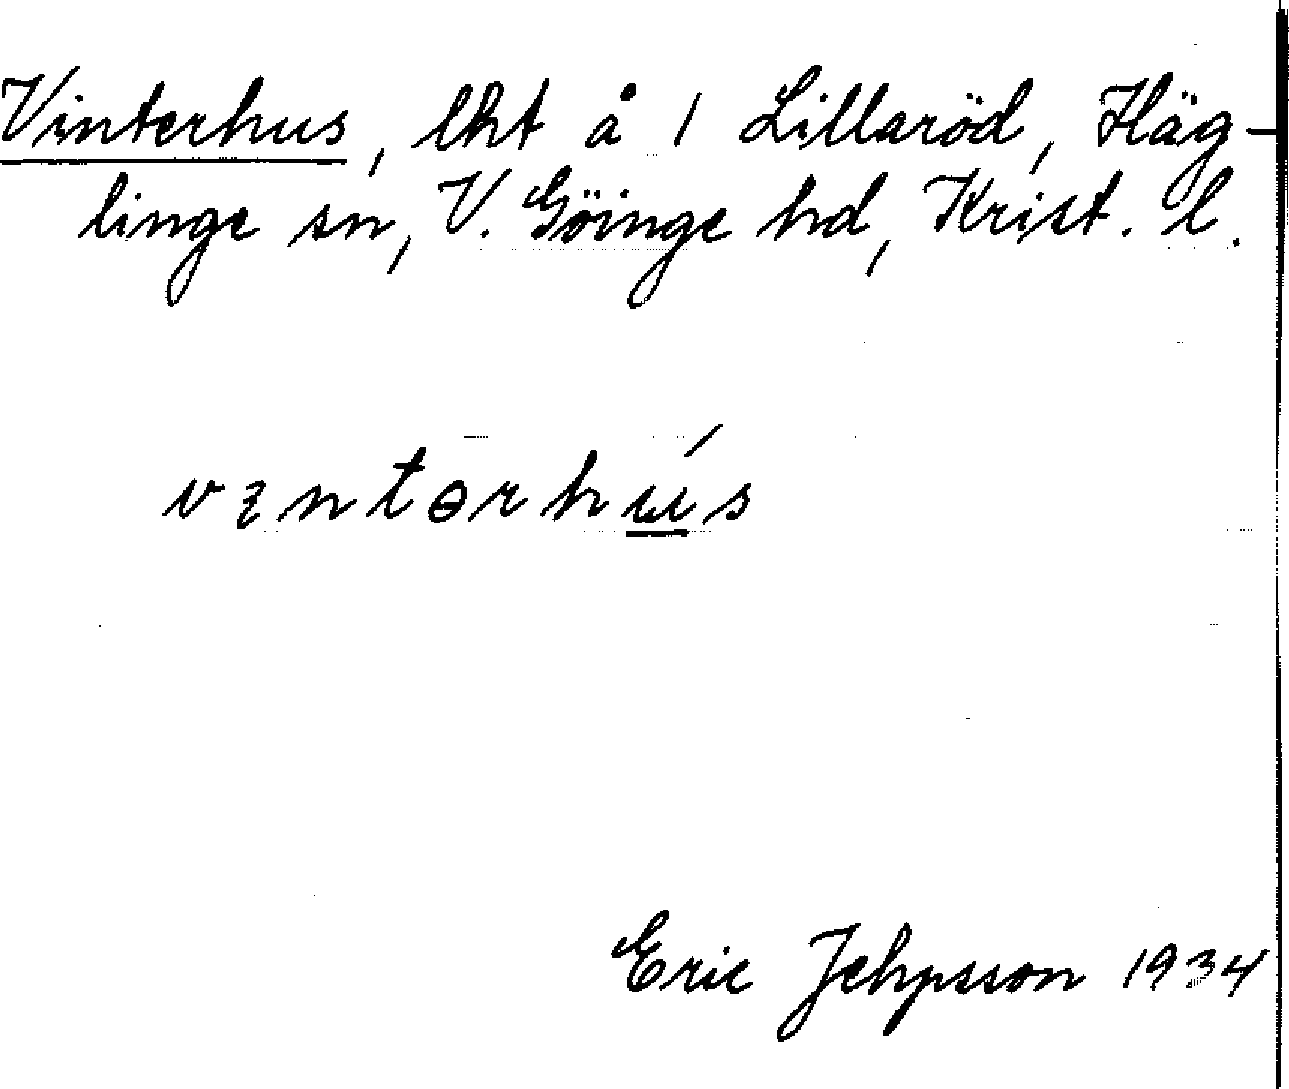 Vinterhus, lht å 1 Lillaröd, Häg-
linge sn, V. Göinge hd, Krist. l.
vintərhú̲s
Eric Jehpsson 1934